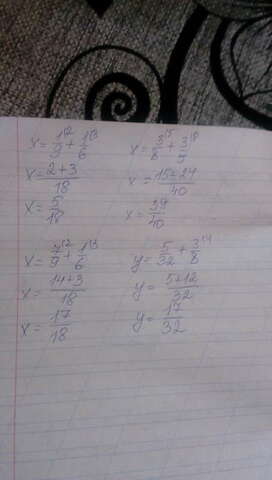 x = 1/9 ⁽² + 1/6 ⁽³
x = 2+3/18
x = 5/18
x = 3/8 ⁽⁵ + 3/5 ⁽⁸
x = 15+24/40
x = 39/40
x = 7/9 ⁽² + 1/6 ⁽³
x = 14+3/18
x = 17/18
y = 5/32 + 3/8 ⁽⁴
y = 5+12/32
y = 17/32